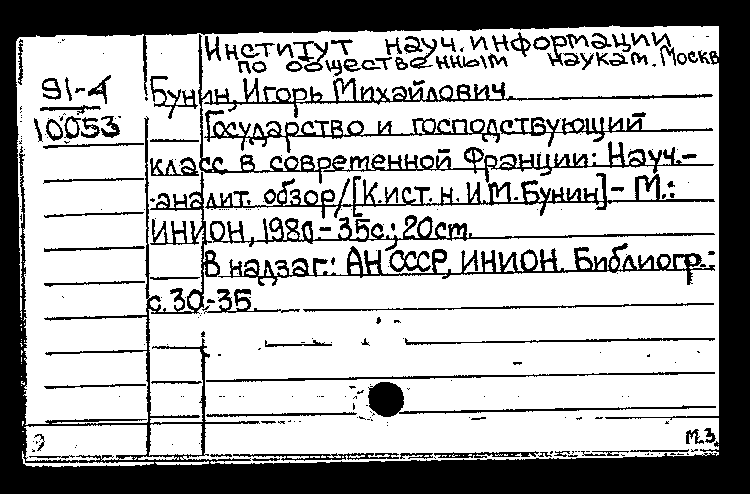 Институт науч. информации
по общественным наукам. Москв
91-4
10053
Бунин, Игорь Михайлович.
Государство и господствующий
класс в современной Франции: Науч.-
-аналит. обзор/[К.ист. н. И.М. Бунин].- М.:
ИНИОН, 1980.- 35с.; 20см.
В надзаг.: АН СССР, ИНИОН. Библиогр.:
с. 30-35.
М.З.